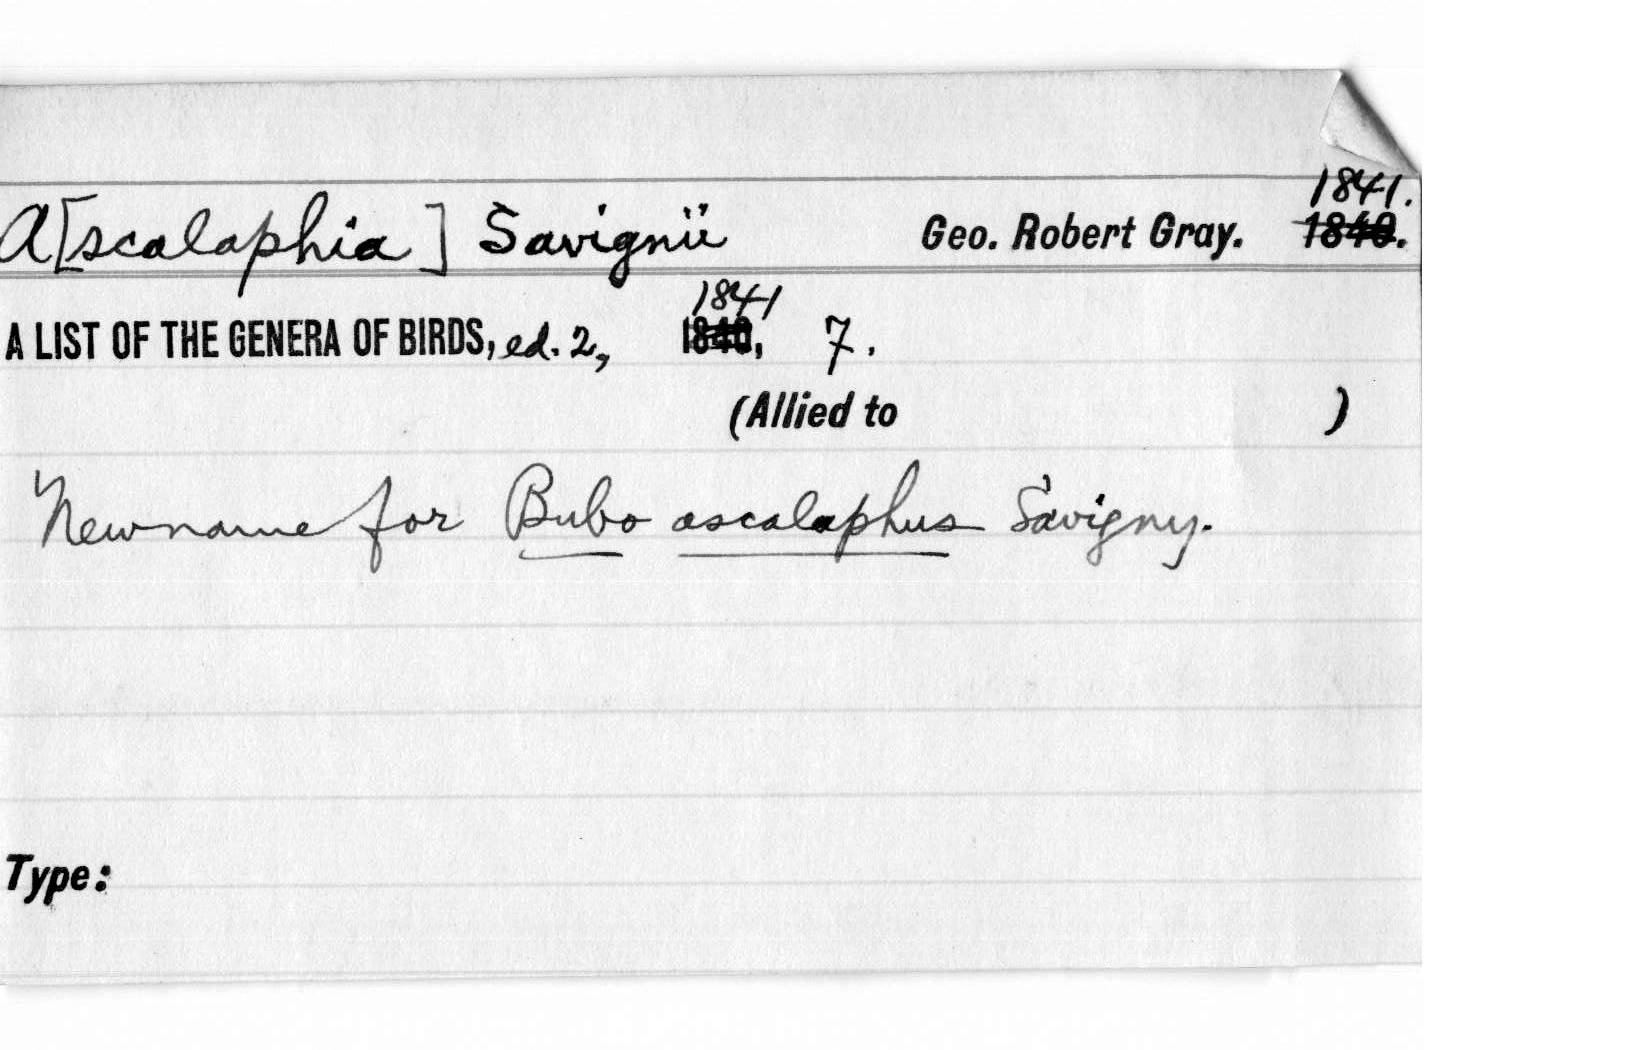 1841.
A[scalaphia] Savignii Geo. Robert Gray. 1840.
1841
A LIST OF THE GENERA OF BIRDS, ed. 2, 1840, 7.
(Allied to )
New name for Bubo ascalaphus Savigny.
Type: